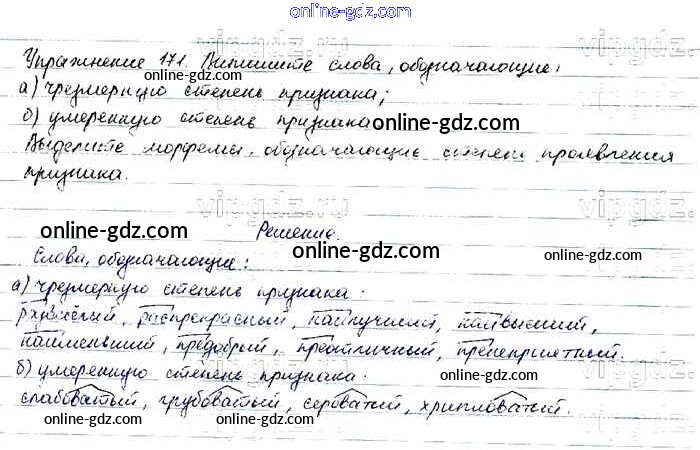 online-gdz.com
Упражнение 171. Выпишите слова, обозначающие:
online-gdz.com
а) чрезмерную степень признака;
б) умеренную степень признака
online-gdz.com
Выделите морфемы, обозначающие степень проявления
признака.
vipgdz.ru
Решение.
online-gdz.com
online-gdz.com
online-gdz.com
Слова, обозначающие:
а) чрезмерную степень признака:
развесёлый, распрекрасный, наилучший, наивысший,
наименьший, предобрый, преотличный, пренеприятный.
б) умеренную степень признака:
online-gdz.com
слабоватый, грубоватый, сероватый, хрипловатый.
online-gdz.com
online-gdz.com